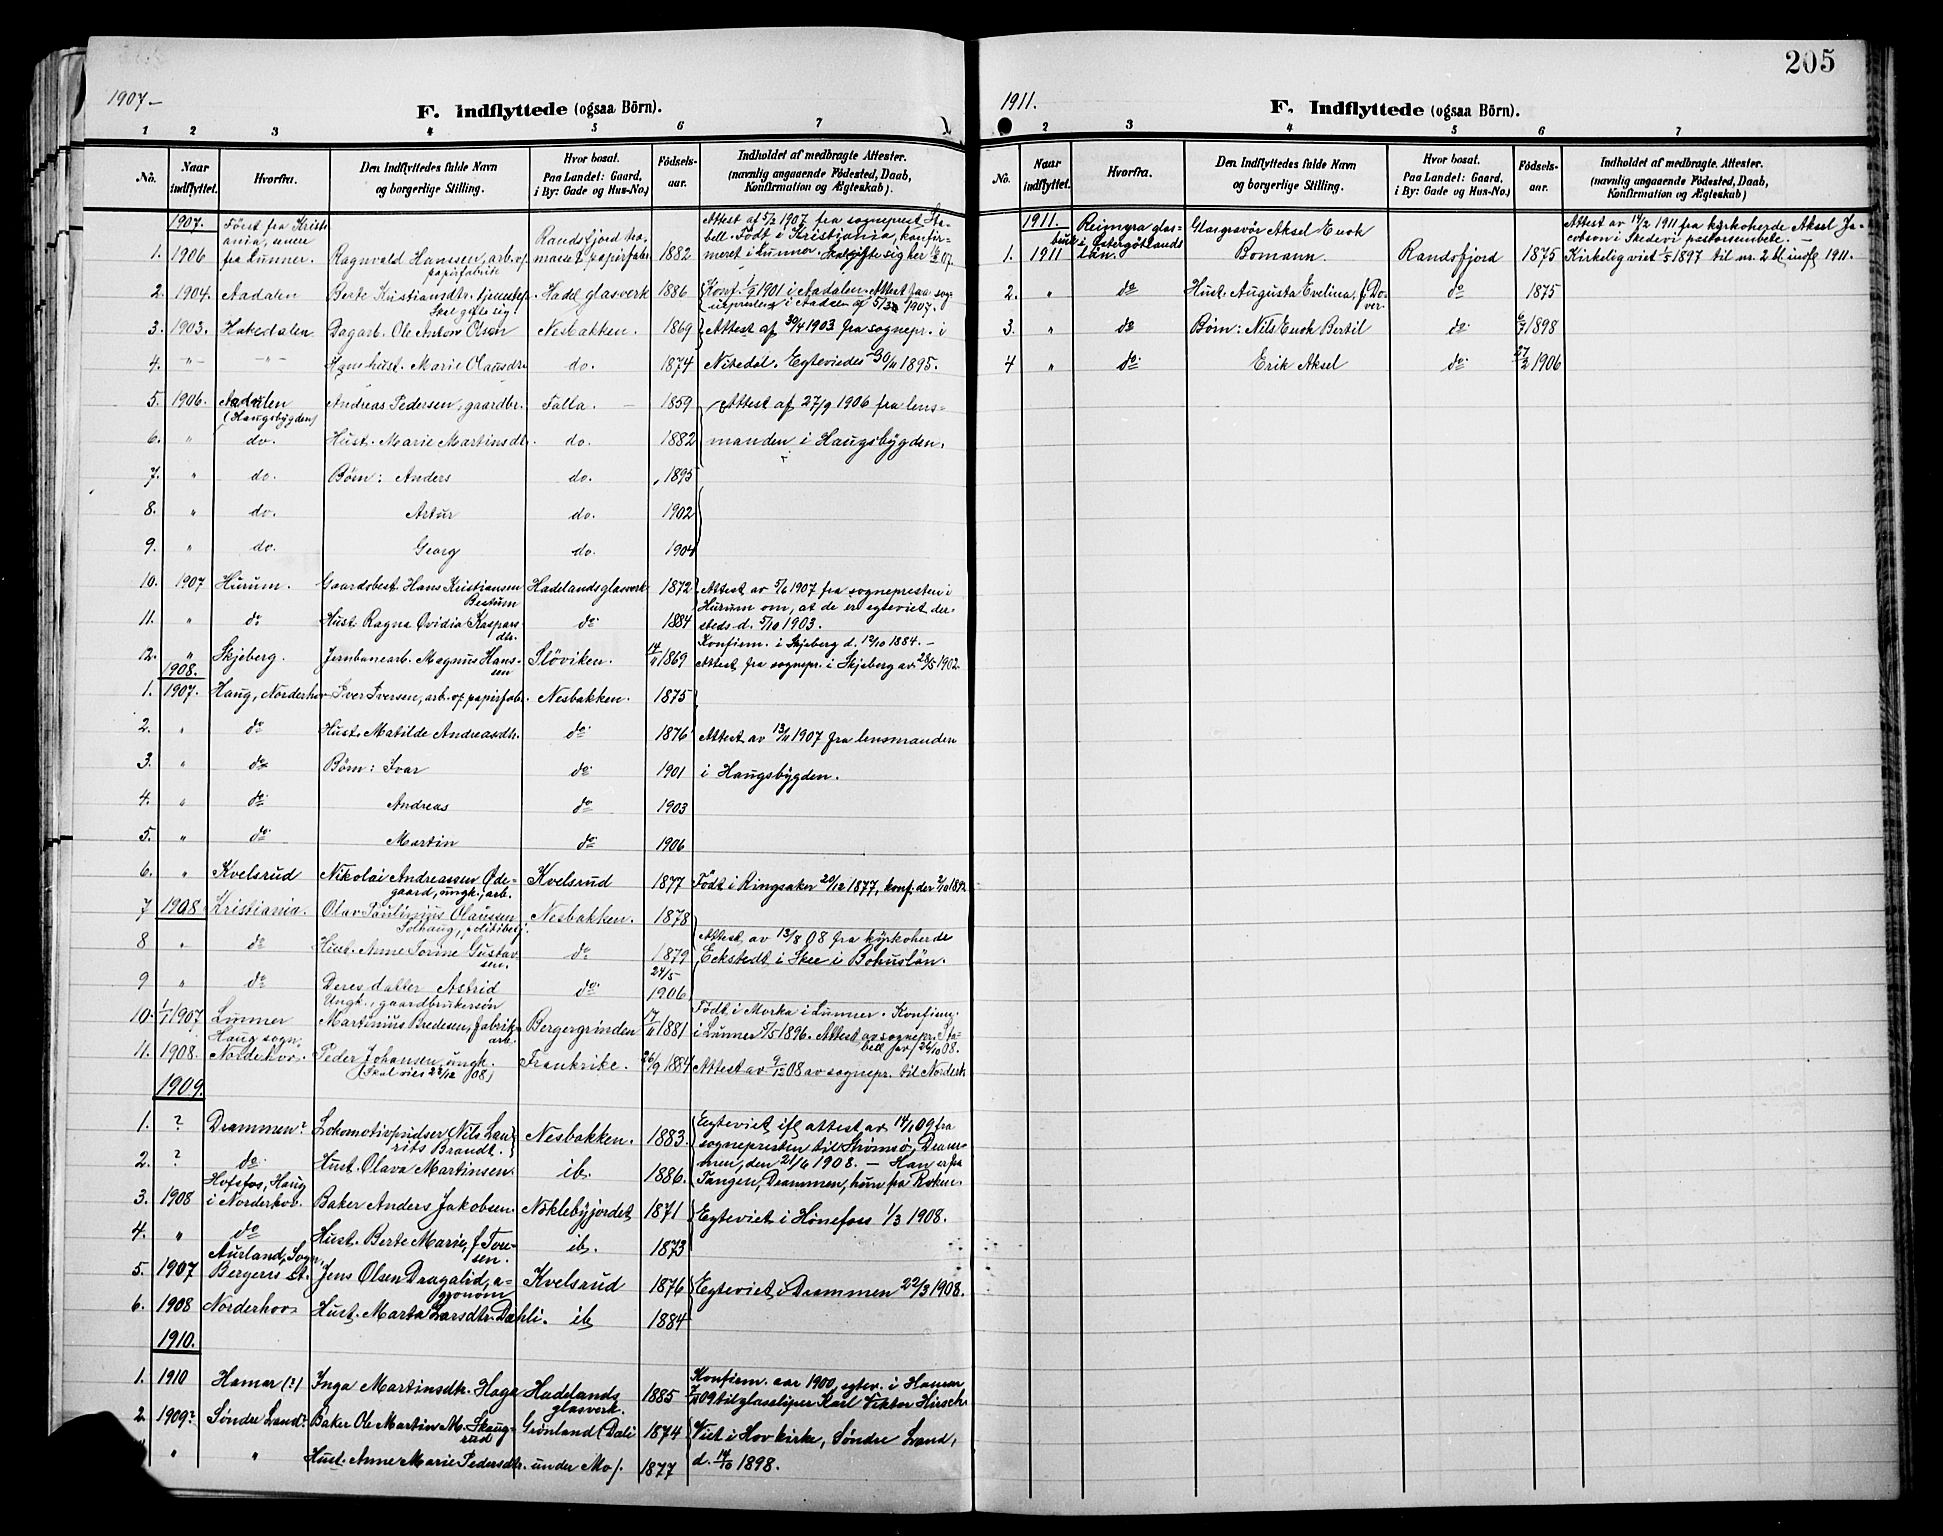 205
1907-
F. Indflyttede (ogsaa Börn).
1 2 3 4 5 6 7
No. Naar indflyttet. Hvorfra. Den Indflyttedes fulde Navn og borgerlige Stilling. Hvor bosat. Paa Landet: Gaard, i By: Gade og Hus-No.) Födsels-aar. Indholdet af medbragte Attester. (navnlig angaaende Födested, Daab, Konfirmation og Ægteskab).
1907.
1. 1906 Först fra Kristiania, fra Lunner. Ragnvald Hanssen, arb. v. papirfabrik Randsfjord 1882 Attest af 5/2 1907 fra sogneprest Født i Kristiania, konfirmeret i Lunner. Skal gifte sig her
2. 1904. Aadalen Berte Kristiansdtr. tjenestep. Skal gifte sig! Hadel. glasverk 1886 Konf. 1901 i Aadalen. Attest fra i Aadalen af 1907.
3. 1903. Hakedalen Dagarb. Ole Anton Olsen Nesbakken. 1869 Attest af 30/4 1903 fra sognepr. i
4. -"- -"- Hans hust. Marie Olausdtr. do. 1874 Nitedal. Egteviedes 30/11 1895.
5. 1906. Aadalen (Haugsbygden) Andreas Pedersen, gaardbr. Falla. 1859 Attest af 27/9 1906 fra lens-
6. " do. Hust. Marie Martinsdtr. do. 1882 manden i Haugsbygden.
7. " do. Børn: Anders do. 1895
8. " do. Artur do. 1902
9. " do. Georg do. 1904
10. 1907 Hurum. Gaardsbest. Hans Kristiansen Bestum Hadelandsglasverk 1872 Attest av 5/6 1907 fra sognepresten i
11. " do Hust. Ragna Ovidia Kaspars dtr. do 1884 Hurum om, at de er egteviet dersteds d. 5/10 1903.
12. " Skjeberg. Jernbanearb. Magnus Hanssen Slöviken. 1869 Konfirm. i Skjeberg d. 12/10 1884. - Attest fra sognepr. i Skjeberg av 28/5 1902
1908.
1. 1907. Haug, Norderhov Iver Iversen, arb. v. papirfabr. Nesbakken. 1875
2. " do Hust. Matilde Andreasdtr. do 1876 Attest av 13/11 1907 fra lensmanden
3. " do Børn: Ivar do 1901 i Haugsbygden.
4. " do Andreas do 1903
5. " do Martin do 1906
6. " Kvelsrud Nikolai Andreassen Ødegaard, ungk., arb. Kvelsrud 1877 Född i Ringsaker 20/12 1877, konf. der
7 1908 Kristiania. Olav Paulinius Olaussen Solhaug, politibetj. Nesbakken. 1878
8 " do Hust. Anne Gustavsen. do 1879 Attest av 13/8 08 fra kyrkoherde Eckstedt i Skee i Bohuslän.
9 " do Deres datter Astrid do 24/5 1906.
10. 1/1 1907 Lunner Ungk., gaardbrukersön Martinius Bredesen, fabrikarb. Bergergrinden 17/11 1881 Född i Morka i Lunner. Konfirm. i Lunner 1896. Attest av sognepr. Stabell av 26/10 08.
11. 1908. Haug sogn, Norderhov. Peder Johansen, ungk. (Skal vies 22/12 08) Frankrike. 26/9 1884 Attest av 9/12 08 av sognepr. til Norderh
1909.
1. ? Drammen? Lokomotivpudser Nils Laurits Brandt. Nesbakken. 1883. Egteviet ifl attest av 14/1 09 fra sognepresten til Strømsø, Dram-
2. ? do. Hust. Olava Martinsen. ib. 1886. men, den 21/6 1908. - Han er fra Tangen, Drammen, hun fra Røken.
3. 1908 Hofsfos, Haug i Norderhov. Baker Anders Jakobsen. Noklebyjordet 1871 Egteviet i Hönefoss 1/3 1908.
4. " do Hust. Berte Marie, f. Iversen. ib. 1873
5. 1907 Aurland, Sogn, Bergens st. Jens Olsen Dragalid, agronom Kvelsrud 1876 Egteviet i Drammen 22/3 1908.
6. 1908 Norderhov Hust. Marta Larsdtr. Dahli. ib 1884
1910.
1. 1910 Hamar (?) Inga Martinsdtr. Haga Hadelands glasverk. 1885 Konfirm. aar 1900, egtev. i Hamar 09 til glassliper Karl Viktor Hirsch
2. 1909? Søndre Land? Baker Ole Martin M. Skaugrud Grønland (Dali 1874 Viet i Hov kirke, Søndre Land,
" " Hust. Anne Marie Pedersdtr. under Mo). 1877 d. 14/10 1898.
1911.
F. Indflyttede (ogsaa Börn).
2 3 4 5 6 7
No. Naar indflyttet. Hvorfra. Den Indflyttedes fulde Navn og borgerlige Stilling. Hvor bosat. Paa Landet: Gaard, i By: Gade og Hus-No.) Födsels-aar. Indholdet af medbragte Attester. (navnlig angaaende Födested, Daab, Konfirmation og Ægteskab)
1911.
1. 1911 Reimyra glasbruk i Østergötlands län. Aksel Enok Bomann. Randsfjord 1875 Attest av 14/2 1911 fra kyrkoherde Aksel Jacobson i Skedevi pastorsembete. - Kirkelig viet 1897 til nr. 2 bl. indfl 1911.
2. " do Hust. Augusta Evelina, f. Dover do 1875
3. " do Børn: Nils Enok Bertil do 1898
4 " do Erik Aksel do 27/2 1906